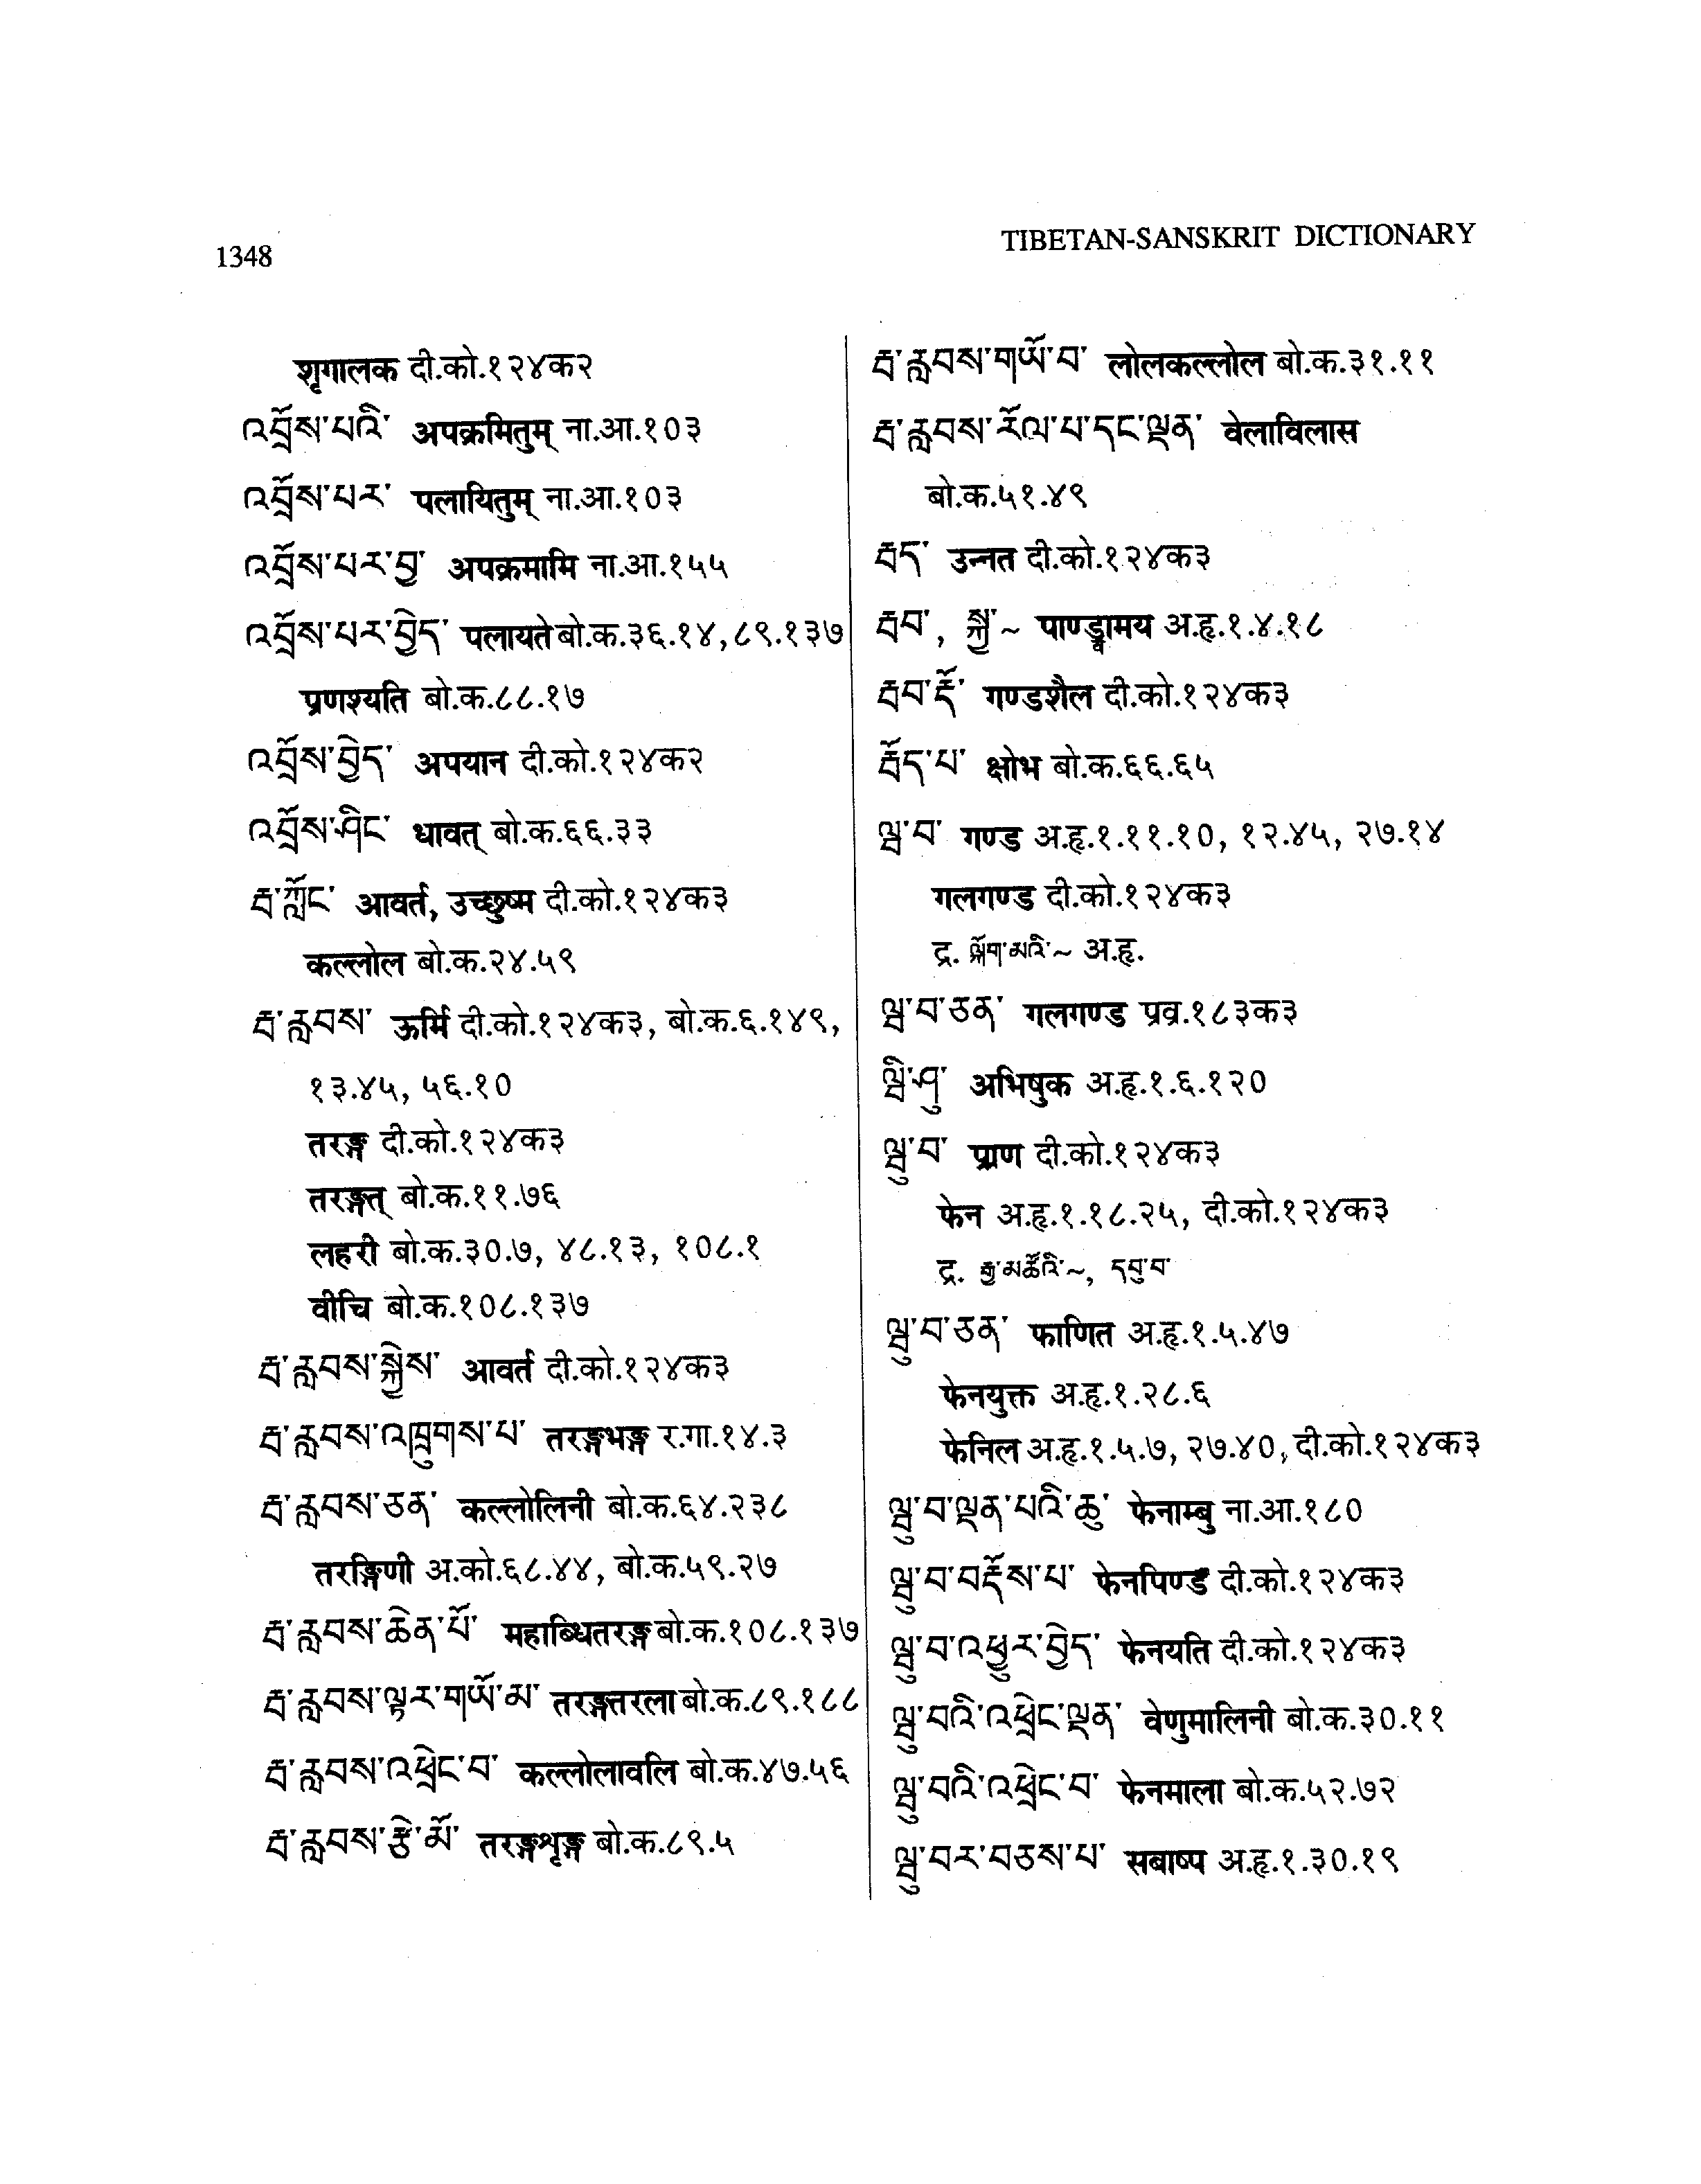 1348
TIBETAN-SANSKRIT DICTIONARY
शृगालक दी.को.१२४क२
འབྲོས་པའི་ अपक्रमितुम् ना.आ.१०३
འབྲོས་པར་ पलायितुम् ना.आ.१०३
འབྲོས་པར་བྱ་ अपक्रमामि ना.आ.१५५
འབྲོས་པར་བྱེད་ पलायते बो.क.३६.१४,८९.१३७
प्रणश्यति बो.क.८८.१७
འབྲོས་བྱེད་ अपयान दी.को.१२४क२
འབྲོས་ཤིང་ धावत् बो.क.६६.३३
རྦ་ཀློང་ आवर्त, उच्छुष्म दी.को.१२४क३
कल्लोल बो.क.२४.५९
རྦ་རླབས་ ऊर्मि दी.को.१२४क३, बो.क.६.१४९,
१३.४५, ५६.१०
तरङ्ग दी.को.१२४क३
तरङ्गत् बो.क.११.७६
लहरी बो.क.३०.७, ४८.१३, १०८.१
वीचि बो.क.१०८.१३७
རྦ་རླབས་སྐྱེས་ आवर्त दी.को.१२४क३
རྦ་རླབས་འཁྲུགས་པ་ तरङ्गभङ्ग र.गा.१४.३
རྦ་རླབས་ཅན་ कल्लोलिनी बो.क.६४.२३८
तरङ्गिणी अ.को.६८.४४, बो.क.५९.२७
རྦ་རླབས་ཆེན་པོ་ महाब्धितरङ्ग बो.क.१०८.१३७
རྦ་རླབས་ལྟར་གཡོ་མ་ तरङ्गतरला बो.क.८९.१८८
རྦ་རླབས་འཕྲེང་བ་ कल्लोलावलि बो.क.४७.५६
རྦ་རླབས་རྩེ་མོ་ तरङ्गशृङ्ग बो.क.८९.५
རྦ་རླབས་གཡོ་བ་ लोलकल्लोल बो.क.३१.११
རྦ་རླབས་རོལ་པ་དང་ལྡན་ वेलाविलास
बो.क.५१.४९
རྦད་ उन्नत दी.को.१२४क३
རྦབ་, སྐྱ་~ पाण्ड्वामय अ.हृ.१.४.१८
རྦབ་རྡོ་ गण्डशैल दी.को.१२४क३
རྦོད་པ་ क्षोभ बो.क.६६.६५
ལྦ་བ་ गण्ड अ.हृ.१.११.१०, १२.४५, २७.१४
गलगण्ड दी.को.१२४क३
द्र. ལྐོག་མའི་~ अ.हृ.
ལྦ་བ་ཅན་ गलगण्ड प्रव्र.१८३क३
ལྦི་ཤུ་ अभिषुक अ.हृ.१.६.१२०
ལྦུ་བ་ प्राण दी.को.१२४क३
फेन अ.हृ.१.१८.२५, दी.को.१२४क३
द्र. རྒྱ་མཚོའི་~, དབུ་བ་
ལྦུ་བ་ཅན་ फाणित अ.हृ.१.५.४७
फेनयुक्त अ.हृ.१.२८.६
फेनिल अ.हृ.१.५.७, २७.४०, दी.को.१२४क३
ལྦུ་བ་ལྡན་པའི་ཆུ་ फेनाम्बु ना.आ.१८०
ལྦུ་བ་བརྡོས་པ་ फेनपिण्ड दी.को.१२४क३
ལྦུ་བ་འཕྱུར་བྱེད་ फेनयति दी.को.१२४क३
ལྦུ་བའི་འཕྲེང་ལྡན་ वेणुमालिनी बो.क.३०.११
ལྦུ་བའི་འཕྲེང་བ་ फेनमाला बो.क.५२.७२
ལྦུ་བར་བཅས་པ་ सबाष्प अ.हृ.१.३०.१९